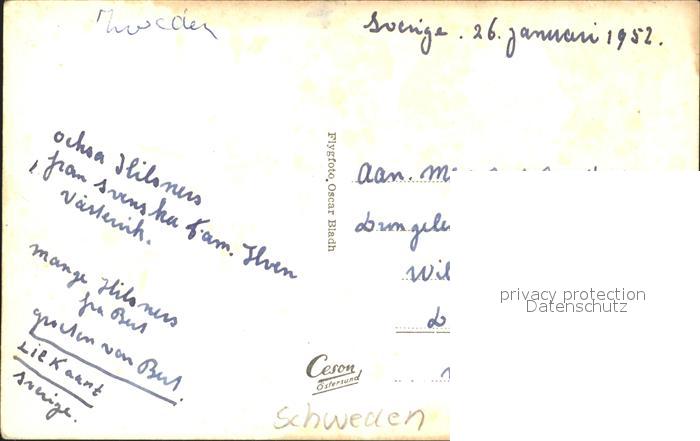 Zweden
Sverige. 26. januari 1952.
ochsa Hilsners
från svenska fam. Ilven
Västervik.
mange Hilsners
fra Bert
groeten van Bert.
Zie Kaart
Sverige.
Flygfoto, Oscar Bladh
Aan.
Wil
privacy protection
Datenschutz
Ceson
Östersund
Schweden